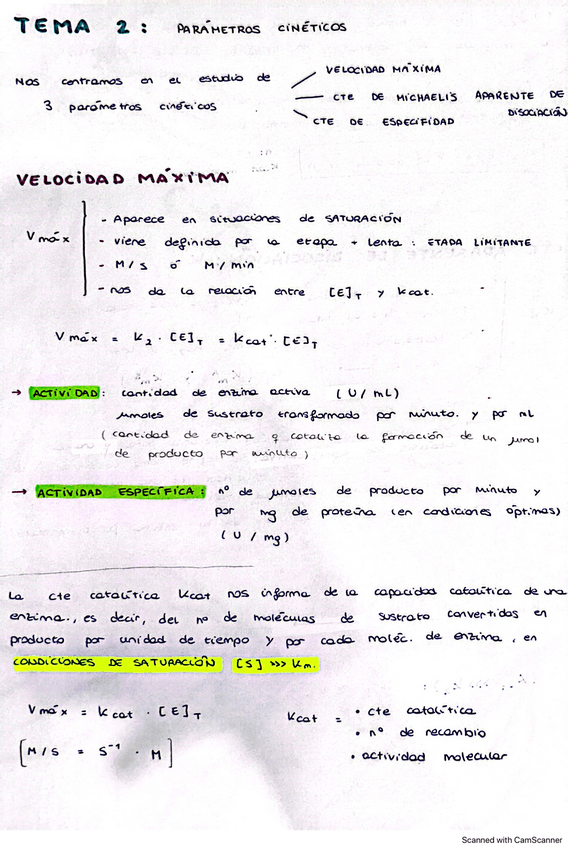 TEMA 2: PARÁMETROS CINÉTICOS
Nos centramos en el estudio de
3 parámetros cinéticos
VELOCIDAD MÁXIMA
CTE DE MICHAELIS APARENTE DE
DISOCIACIÓN
CTE DE ESPECIFIDAD
VELOCIDAD MÁXIMA
Vmáx
- Aparece en situaciones de SATURACIÓN
- viene definida por la etapa + lenta: ETADA LIMITANTE
- M/s ó M/min
- nos da la relación entre [E]T y kcat.
Vmáx = K2 · [E]T = Kcat · [E]T
→ ACTIVIDAD: cantidad de enzima activa (U/mL)
μmoles de sustrato transformado por minuto. y por mL
(cantidad de enzima q cataliza la formación de un μmol
de producto por minuto)
→ ACTIVIDAD ESPECÍFICA: nº de μmoles de producto por minuto y
por mg de proteína (en condiciones óptimas)
(U / mg)
La cte catalítica Kcat nos informa de la capacidad catalítica de una
enzima., es decir, del nº de moléculas de sustrato convertidos en
producto por unidad de tiempo y por cada moléc. de enzima, en
CONDICIONES DE SATURACIÓN [S] >>> Km.
Vmáx = Kcat · [E]T
[M/S = S⁻¹ · M]
Kcat =
• cte catalítica
• nº de recambio
• actividad molecular
Scanned with CamScanner